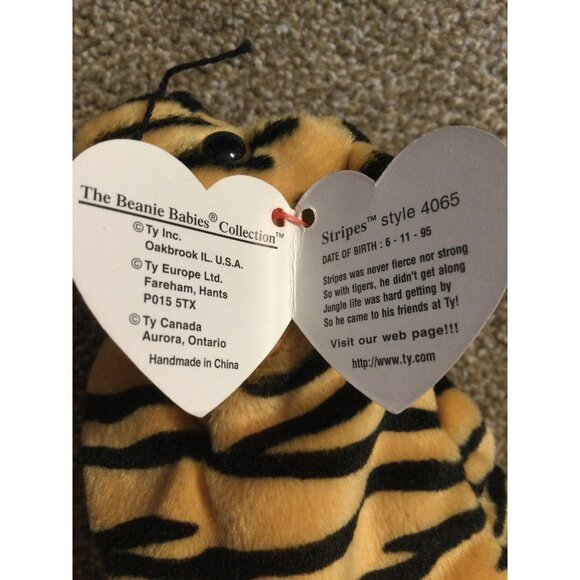 The Beanie Babies® Collection™
© Ty Inc.
Oakbrook IL. U.S.A.
© Ty Europe Ltd.
Fareham, Hants
P015 5TX
© Ty Canada
Aurora, Ontario
Handmade in China
Stripes™ style 4065
DATE OF BIRTH : 6 - 11 - 95
Stripes was never fierce nor strong
So with tigers, he didn't get along
Jungle life was hard getting by
So he came to his friends at Ty!
Visit our web page!!!
http://www.ty.com